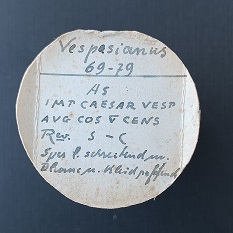 Vespasianus
69-79
As
IMP CAESAR VESP
AVG COS V CENS
Rev. S - C
Spes l. schreitend m.
Blume u. Kleid raffend